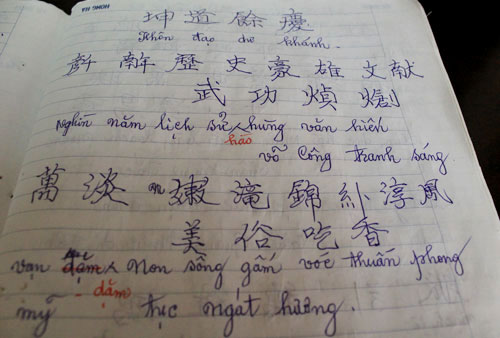 HONG HA
坤道餘慶
Khôn đạo dư khánh.
歷史豪雄文献
武功
nghìn năm lịch sử hùng văn hiến
hào
võ công tranh sáng
萬 滝錦 淳風
美俗吃香
vạn dặm non sông gấm vóc thuần phong
dặm
mỹ tục ngát hương.